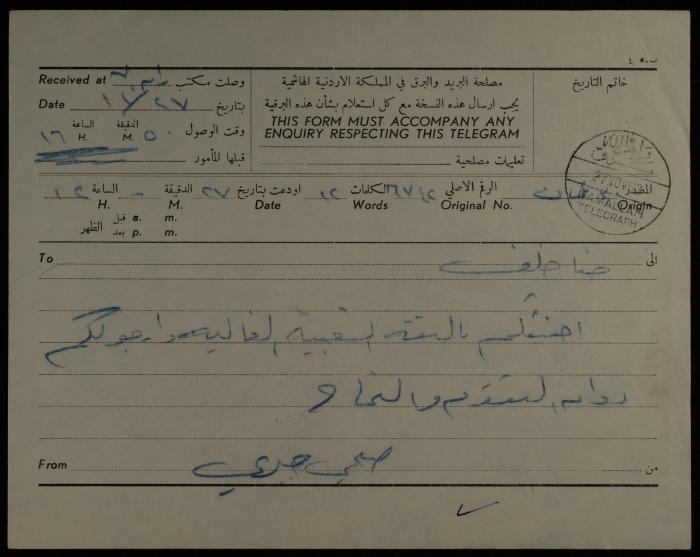 ب.ه ٤
Received at رام الله وصلت مكتب
Date ٢٧/١١ بتاريخ
الساعة ١٦ H. الدقيقة ٥٠ M. وقت الوصول
قبلها المأمور
مصلحة البريد والبرق في المملكة الاردنية الهاشمية
يجب ارسال هذه النسخة مع كل استعلام بشأن هذه البرقية
THIS FORM MUST ACCOMPANY ANY
ENQUIRY RESPECTING THIS TELEGRAM
تعليمات مصلحية
خاتم التاريخ
رام الله
27 NOV
RAMALLAH
TELEGRAPH
المصدر Origin
الرقم الاصلي Original No.
الكلمات ١٢ Words
اودعت بتاريخ ٢٧ Date
الدقيقة - M. الساعة ١٢ H.
قبل a. m.
بعد p. m.
الظهر
To حنا خلف الى
اهنئكم بالثقة الشعبية الغالية وارجو لكم
دوام التقدم والنجاح
From صبحي من